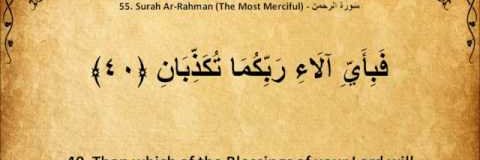 55. Surah Ar-Rahman (The Most Merciful) - سورة الرحمن
فَبِأَيِّ آلَاءِ رَبِّكُمَا تُكَذِّبَانِ ﴿٤٠﴾
40. Then which of the Blessings of your Lord will